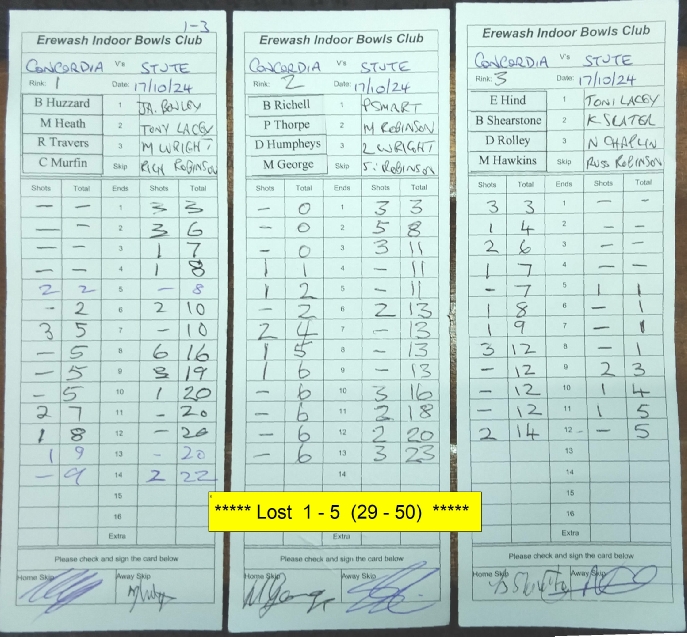 1-3
Erewash Indoor Bowls Club
CONCORDIA V's STUTE
Rink: 1 Date: 17/10/24
B Huzzard 1 JA. BEXLEY
M Heath 2 TONY LACEY
R Travers 3 M WRIGHT
C Murfin Skip RICH ROBINSON
Shots Total Ends Shots Total
— — 1 3 3
— — 2 3 6
— — 3 1 7
— — 4 1 8
2 2 5 - 8
- 2 6 2 10
3 5 7 - 10
- 5 8 6 16
- 5 9 3 19
- 5 10 1 20
2 7 11 - 20
1 8 12 - 20
1 9 13 - 20
- 9 14 2 22
15
16
Extra
Please check and sign the card below
Home Skip Away Skip
Erewash Indoor Bowls Club
CONCORDIA V's STUTE
Rink: 2 Date: 17/10/24
B Richell 1 P SMART
P Thorpe 2 M ROBINSON
D Humpheys 3 L WRIGHT
M George Skip S. ROBINSON
Shots Total Ends Shots Total
- 0 1 3 3
- 0 2 5 8
- 0 3 3 11
1 1 4 - 11
1 2 5 - 11
- 2 6 2 13
2 4 7 - 13
1 5 8 - 13
1 6 9 - 13
- 6 10 3 16
- 6 11 2 18
- 6 12 2 20
- 6 13 3 23
14
Extra
Please check and sign the card below
Home Skip Away Skip
Erewash Indoor Bowls Club
CONCORDIA V's STUTE
Rink: 3 Date: 17/10/24
E Hind 1 TONI LACEY
B Shearstone 2 K SLATER
D Rolley 3 N CHAPLIN
M Hawkins Skip RUSS ROBINSON
Shots Total Ends Shots Total
3 3 1 - -
1 4 2 - -
2 6 3 - -
1 7 4 - -
- 7 5 1 1
1 8 6 - 1
1 9 7 - 1
3 12 8 - 1
- 12 9 2 3
- 12 10 1 4
- 12 11 1 5
2 14 12 - 5
13
14
15
16
Extra
Please check and sign the card below
Home Skip Away Skip
***** Lost 1 - 5 (29 - 50) *****